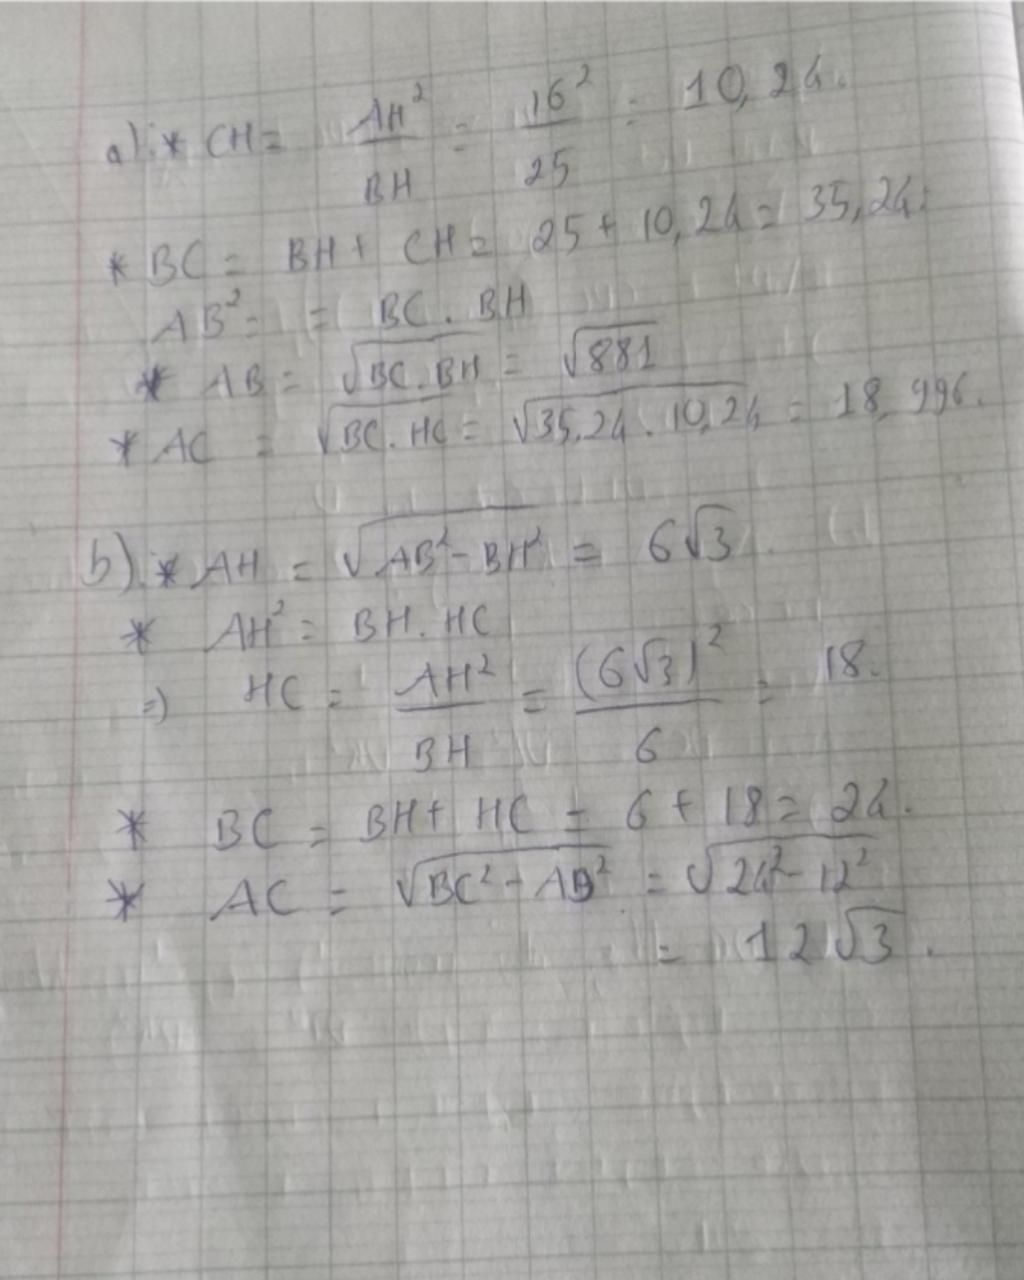 a) * CH = AH² / BH = 16² / 25 = 10,24.
* BC = BH + CH = 25 + 10,24 = 35,24.
AB² = = BC . BH
* AB = √BC.BH = √881
* AC = √BC.HC = √35,24 . 10,24 = 18,996.
b) * AH = √AB² - BH² = 6√3
* AH² = BH.HC
=) HC = AH² / BH = (6√3)² / 6 = 18.
* BC = BH + HC = 6 + 18 = 24.
* AC = √BC² - AB² = √24² - 12²
= 12√3.